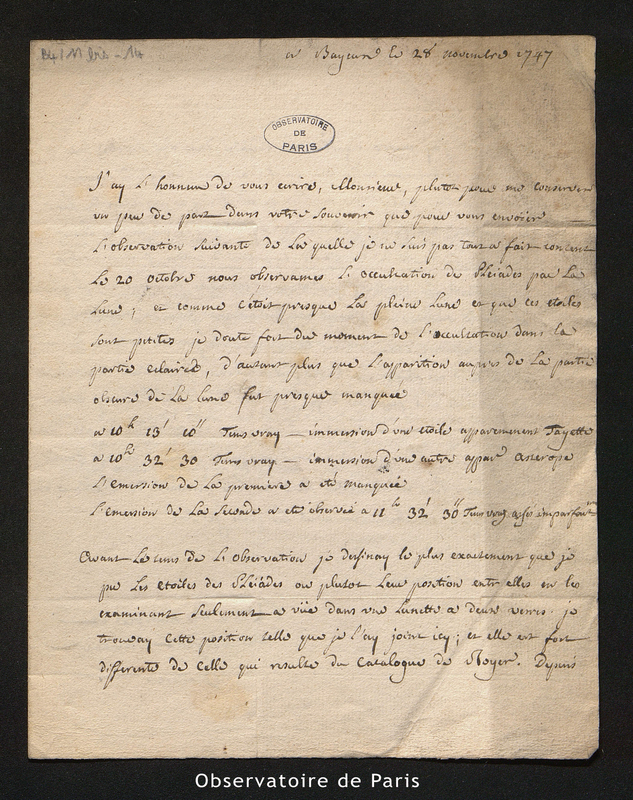 B4/11 bis - 14
a Bayeux le 28 novembre 1747
OBSERVATOIRE
DE
PARIS
J'ay l'honneur de vous ecrire, Monsieur, plutot pour me conserver
un peu de part dans votre souvenir que pour vous envoier
l'observation suivante de la quelle je ne suis pas tout a fait content
Le 20 octobre nous observames l'occultation de Pleiades par La
Lune ; et comme c'etoit presque La pleine Lune et que ces etoiles
sont petites je doute fort du moment de l'occultation dans la
partie eclairée, d'autant plus que l'apparition aupres de La partie
obscure de La lune fut presque manquée
a 10h 13' 10" Tems vray — immersion d'une etoile apparemment Tayette
a 10h 32' 30 Tems vray — immersion d'une autre appar Asterope
L'emersion de la premiere a eté manquée
L'emersion de La seconde a eté observée a 11h 32' 30" Tems vray assés imparfaitmt
Avant Le tems de L'observation je dessinay le plus exactement que je
pus Les etoiles des Pleiades ou plutot Leur position entr'elles en les
examinant seulement a vüe dans une Lunette a deux verres. je
trouvay cette position telle que je l'ay joint icy ; et elle est fort
differente de celle qui resulte du Catalogue de Royer. Depuis
Observatoire de Paris